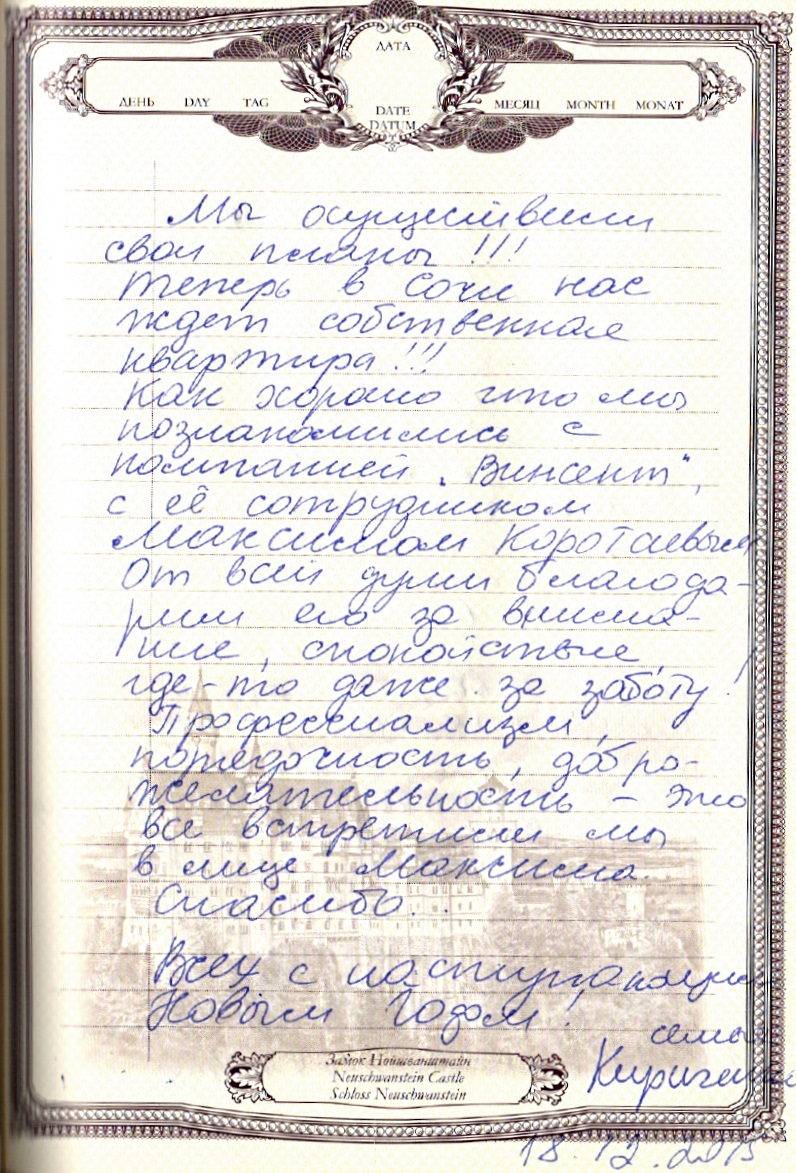 ДАТА
ДЕНЬ DAY TAG
DATE
DATUM
МЕСЯЦ MONTH MONAT
Мы осуществили
свои планы!!!
Теперь в Сочи нас
ждет собственная
квартира!!!
Как хорошо что мы
познакомились с
компанией „Винсент",
с её сотрудником
Максимом Коротаевым
От всей души благода-
рим его за внима-
ние, спокойствие,
где-то даже за заботу!
Профессионализм,
порядочность, добро-
желательность – это
все встретили мы
в лице Максима.
Спасибо..
Всех с наступающим
Новым Годом!
семья
Замок Нойшванштайн
Neuschwanstein Castle
Schloss Neuschwanstein
18.12.2015